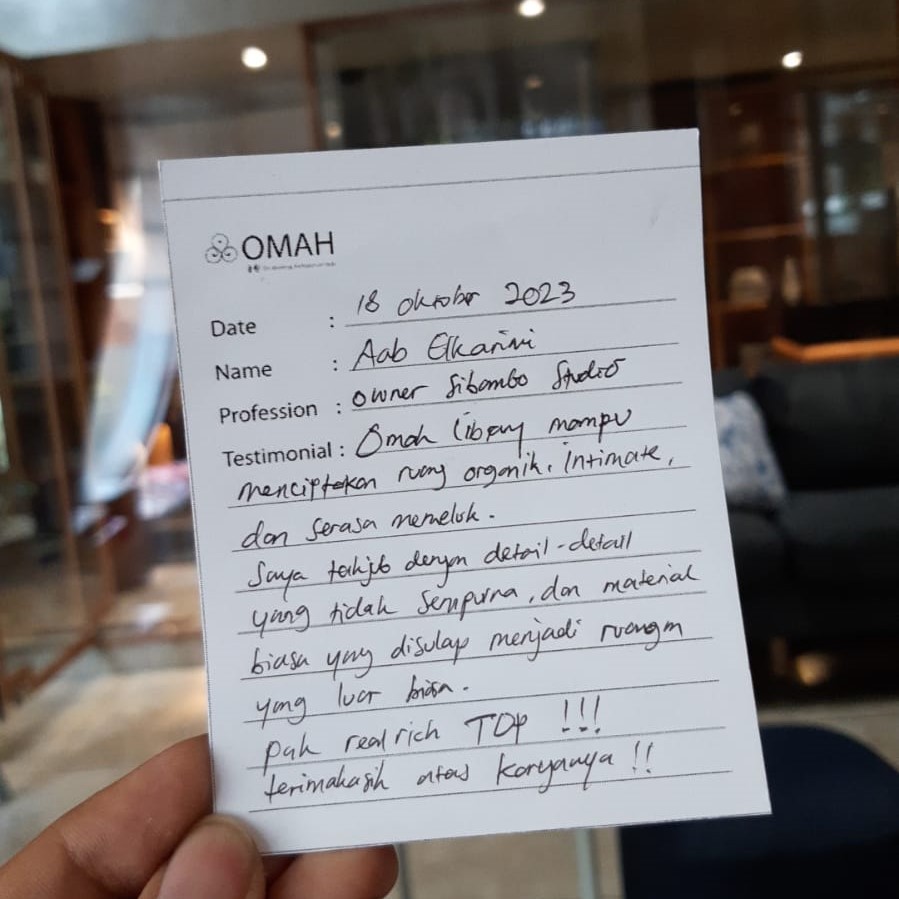 OMAH
Date : 18 Oktober 2023
Name : Aab Elkarimi
Profession : Owner Sibambo Studio
Testimonial : Omah Library mampu
menciptakan ruang organik, intimate,
dan serasa memeluk.
Saya takjub dengan detail-detail
yang tidak sempurna, dan material
biasa yang disulap menjadi ruangan
yang luar biasa.
Pak realrich TOP !!!
terimakasih atas karyanya !!